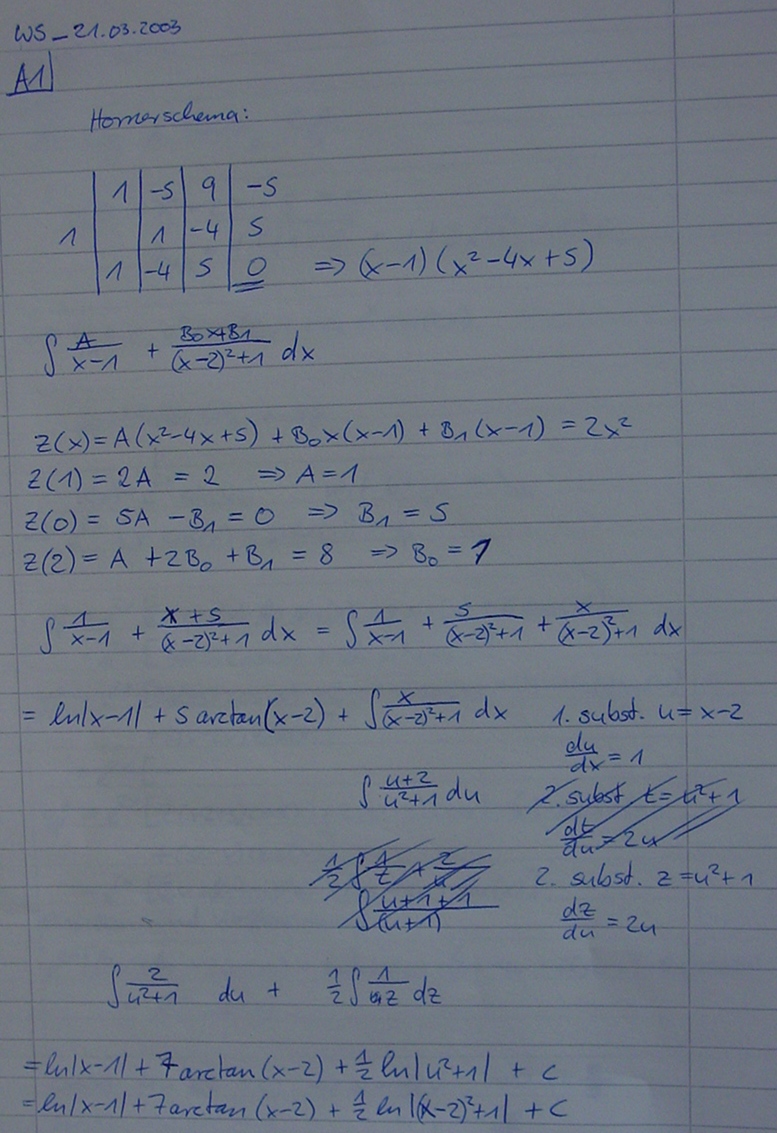 WS_21.03.2003
A1
Hornerschema:
1 | -5 | 9 | -5
1 | | 1 | -4 | 5
1 | -4 | 5 | 0 => (x-1)(x²-4x+5)
∫ A/(x-1) + (B₀x+B₁)/((x-2)²+1) dx
Z(x) = A(x²-4x+5) + B₀x(x-1) + B₁(x-1) = 2x²
Z(1) = 2A = 2 => A=1
Z(0) = 5A - B₁ = 0 => B₁ = 5
Z(2) = A + 2B₀ + B₁ = 8 => B₀ = 1
∫ 1/(x-1) + (x+5)/((x-2)²+1) dx = ∫ 1/(x-1) + 5/((x-2)²+1) + x/((x-2)²+1) dx
= ln|x-1| + 5 arctan(x-2) + ∫ x/((x-2)²+1) dx 1. subst. u = x-2
du/dx = 1
∫ (u+2)/(u²+1) du 2. subst t = u²+1
dt/du = 2u
1/2 ∫ 1/t + 2/u 2. subst. z = u²+1
∫ (u+1+1)/(u+1) dz/du = 2u
∫ 2/(u²+1) du + 1/2 ∫ 1/z dz
= ln|x-1| + 7 arctan(x-2) + 1/2 ln|u²+1| + c
= ln|x-1| + 7 arctan(x-2) + 1/2 ln|(x-2)²+1| + c